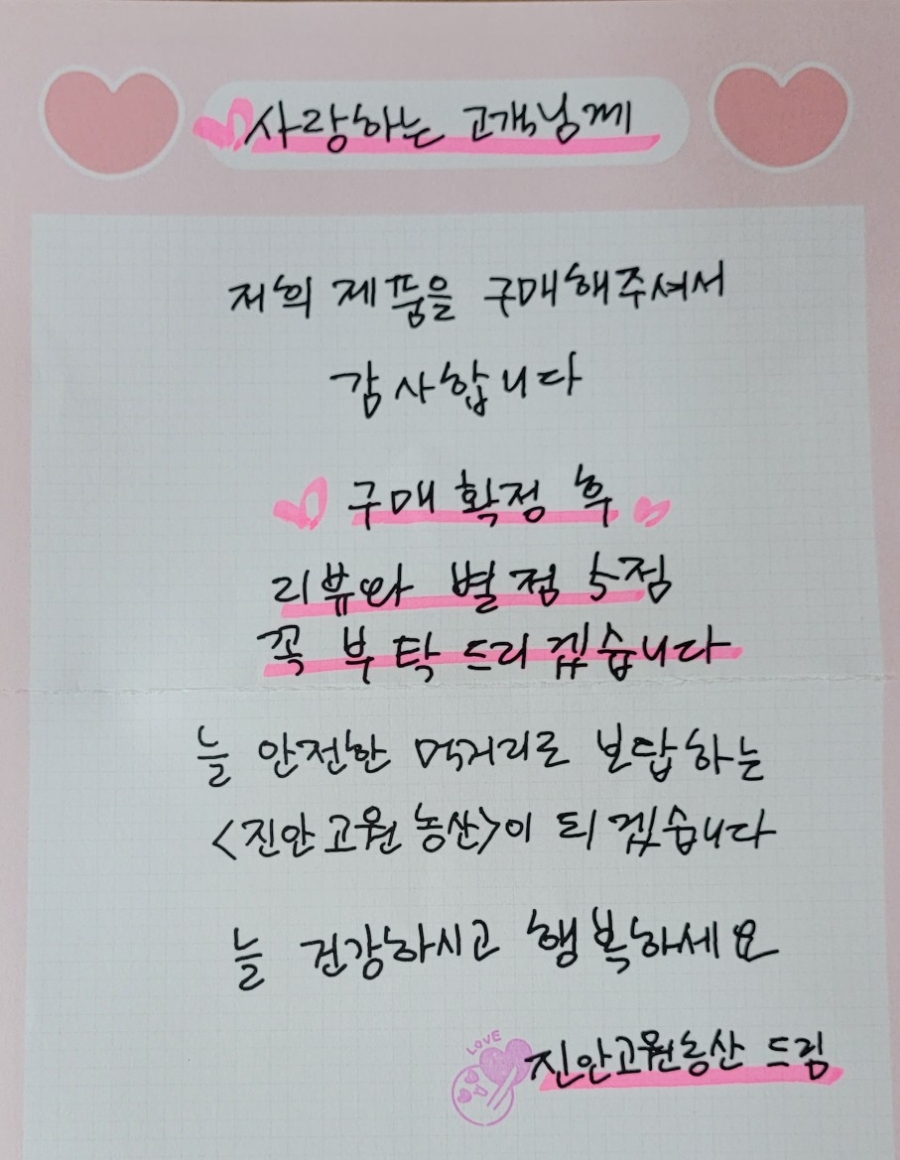 사랑하는 고객님께
저희 제품을 구매해주셔서
감사합니다
구매 확정 후
리뷰와 별점 5점
꼭 부탁 드리겠습니다
늘 안전한 먹거리로 보답하는
<진안고원농산>이 되겠습니다
늘 건강하시고 행복하세요
LOVE
진안고원농산 드림